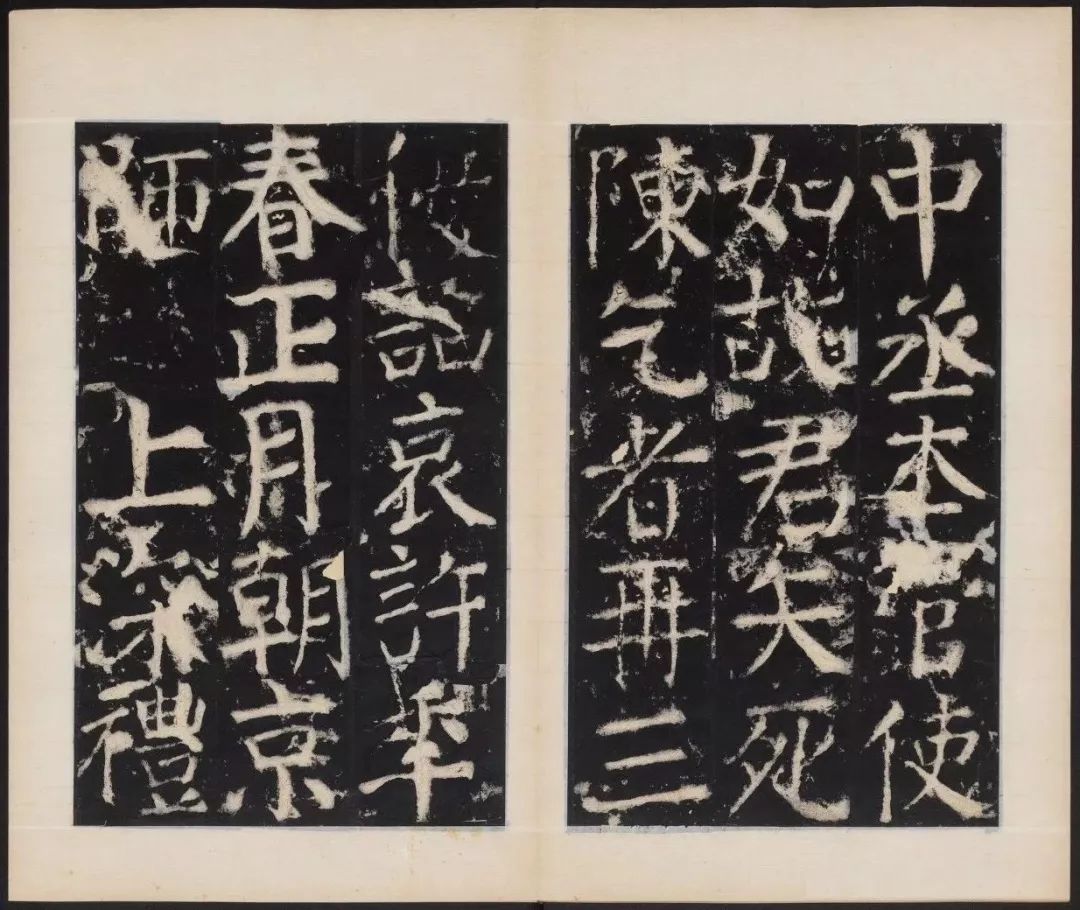 中丞本管使
如故君矢死
陳乞者再三
詔哀許年
春正月朝京
師上禮